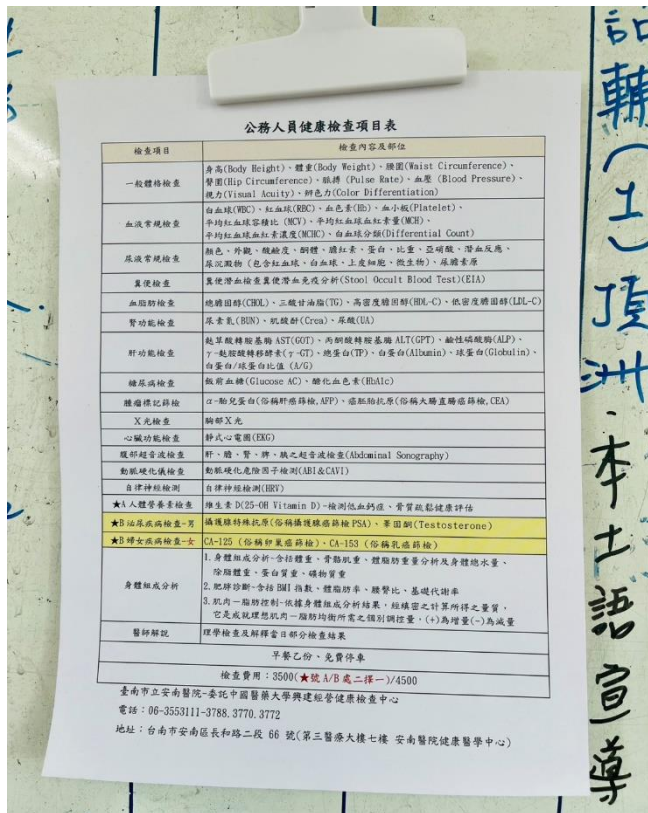 公務人員健康檢查項目表
檢查項目 檢查內容及部位
一般體格檢查 身高(Body Height)、體重(Body Weight)、腰圍(Waist Circumference)、
臀圍(Hip Circumference)、脈搏 (Pulse Rate)、血壓 (Blood Pressure)、
視力(Visual Acuity)、辨色力(Color Differentiation)
血液常規檢查 白血球(WBC)、紅血球(RBC)、血色素(Hb)、血小板(Platelet)、
平均紅血球容積比 (MCV)、平均紅血球血紅素量(MCH)、
平均紅血球血紅素濃度(MCHC)、白血球分類(Differential Count)
尿液常規檢查 顏色、外觀、酸鹼度、酮體、膽紅素、蛋白、比重、亞硝酸、潛血反應、
尿沉澱物 (包含紅血球、白血球、上皮細胞、微生物)、尿膽素原
糞便檢查 糞便潛血檢查糞便潛血免疫分析(Stool Occult Blood Test)(EIA)
血脂肪檢查 總膽固醇(CHOL)、三酸甘油脂(TG)、高密度膽固醇(HDL-C)、低密度膽固醇(LDL-C)
腎功能檢查 尿素氮(BUN)、肌酸酐(Crea)、尿酸(UA)
肝功能檢查 麩草酸轉胺基酶 AST(GOT)、丙酮酸轉胺基酶 ALT(GPT)、鹼性磷酸酶(ALP)、
γ-麩胺酸轉移酵素(γ-GT)、總蛋白(TP)、白蛋白(Albumin)、球蛋白(Globulin)、
白蛋白/球蛋白比值 (A/G)
糖尿病檢查 飯前血糖(Glucose AC)、醣化血色素(HbA1c)
腫瘤標記篩檢 α-胎兒蛋白(俗稱肝癌篩檢,AFP)、癌胚胎抗原(俗稱大腸直腸癌篩檢,CEA)
X光檢查 胸部X光
心臟功能檢查 靜式心電圖(EKG)
腹部超音波檢查 肝、膽、腎、脾、胰之超音波檢查(Abdominal Sonography)
動脈硬化儀檢查 動脈硬化危險因子檢測(ABI&CAVI)
自律神經檢測 自律神經檢測(HRV)
★A人體營養素檢查 維生素 D(25-OH Vitamin D)-檢測低血鈣症、骨質疏鬆健康評估
★B泌尿疾病檢查-男 攝護腺特殊抗原(俗稱攝護腺癌篩檢PSA)、睪固酮(Testosterone)
★B婦女疾病檢查-女 CA-125 (俗稱卵巢癌篩檢)、CA-153 (俗稱乳癌篩檢)
身體組成分析 1.身體組成分析-含括體重、骨骼肌重、體脂肪重量分析及身體總水量、
除脂體重、蛋白質重、礦物質重
2.肥胖診斷-含括BMI 指數、體脂肪率、腰臀比、基礎代謝率
3.肌肉-脂肪控制-依據身體組成分析結果,經縝密之計算所得之量質,
它是成就理想肌肉-脂肪均衡所需之個別調控量,(+)為增量(-)為減量
醫師解說 理學檢查及解釋當日部分檢查結果
早餐乙份、免費停車
檢查費用:3500(★號 A/B 處二擇一)/4500
臺南市立安南醫院-委託中國醫藥大學興建經營健康檢查中心
電話:06-3553111-3788.3770.3772
地址:台南市安南區長和路二段 66 號(第三醫療大樓七樓 安南醫院健康醫學中心)
輔(土)頂洲·本土語宣導